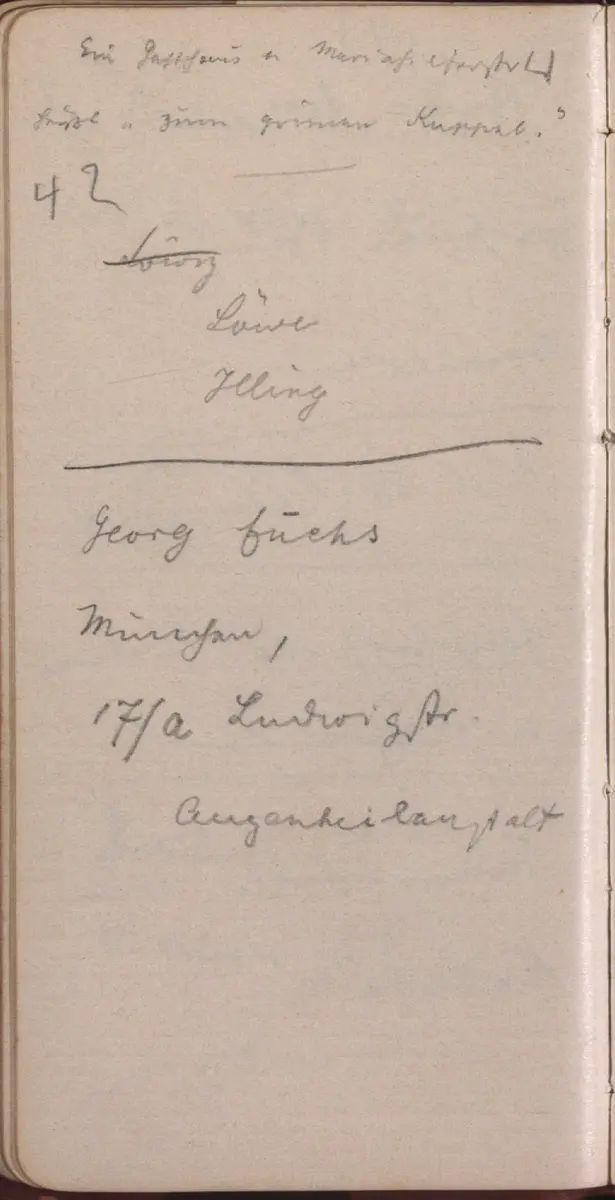 Ein Gasthaus a Mariahilferstr
heißt „zum grünen Kuppel."
42
Löwy
Löwe
Illing
Georg Fuchs
München,
17/a Ludwigstr.
Augenheilanstalt